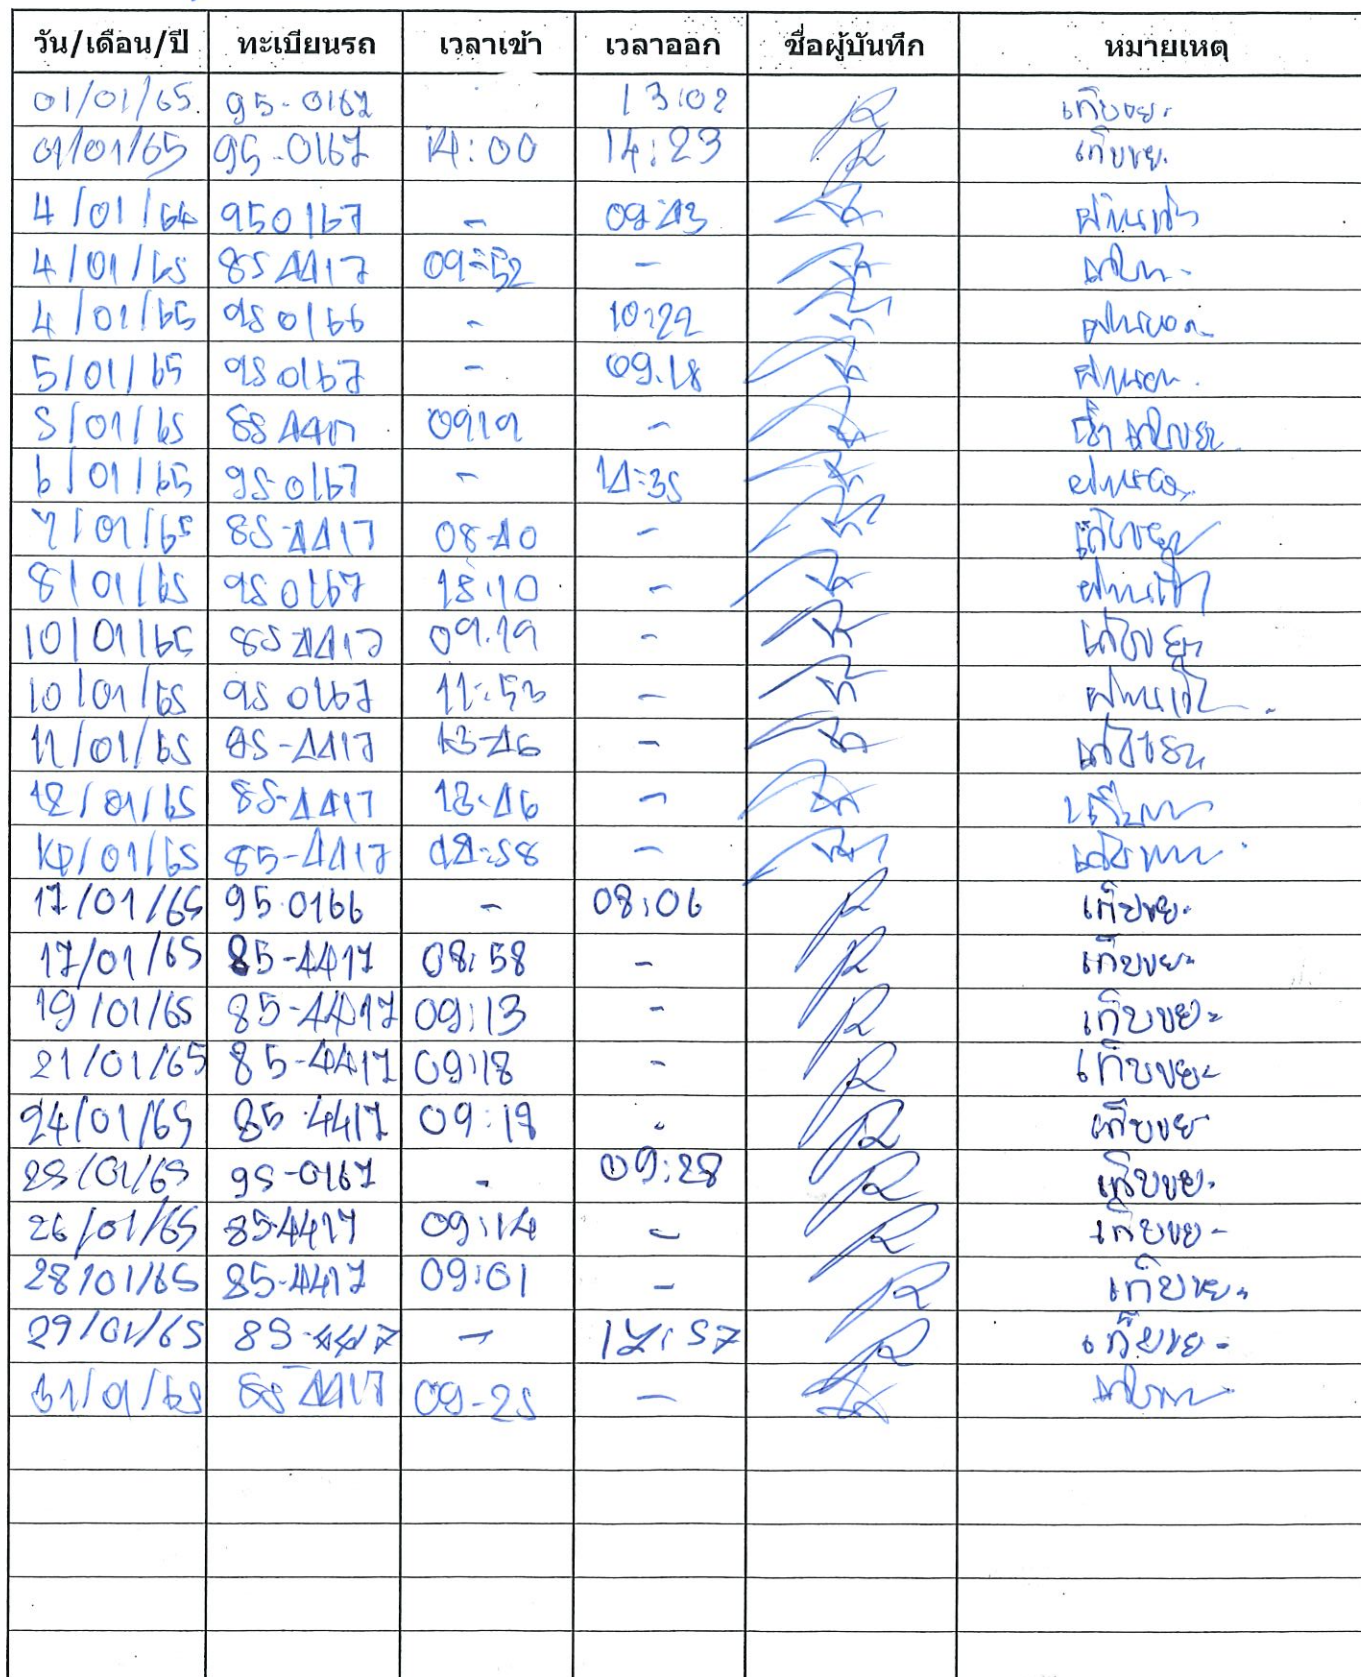 วัน/เดือน/ปี ทะเบียนรถ เวลาเข้า เวลาออก ชื่อผู้บันทึก หมายเหตุ
01/01/65. 95-0167 13:02 เก็บขยะ
01/01/65 95-0167 14:00 14:23 เก็บขยะ
4/01/64 950167 - 09:43 ผ่านเข้า
4/01/65 85 4417 09:52 -
4/01/65 95 0166 - 10:22
5/01/65 95 0167 - 09.18
5/01/65 85 4417 0919 -
6/01/65 95 0167 - 14:35
7/01/65 85-4417 08-40 - เก็บขยะ
8/01/65 95 0167 18:10 - ผ่านเข้า
10/01/65 85 4417 09.19 - เก็บขยะ
10/01/65 95 0167 11:53 - ผ่านเข้า
11/01/65 85-4417 13-46 -
12/01/65 85-4417 13-46 -
/01/65 85-4417 -
17/01/65 95-0166 - 08:06 เก็บขยะ
17/01/65 85-4417 08:58 - เก็บขยะ
19/01/65 85-4417 09:13 - เก็บขยะ
21/01/65 85-4417 09:18 - เก็บขยะ
24/01/65 85-4417 09:19 - เก็บขยะ
25/01/65 95-0167 - 09:28 เก็บขยะ
26/01/65 85-4417 09:14 - เก็บขยะ
28/01/65 85-4417 09:01 - เก็บขยะ
29/01/65 85-4417 - 17:57 เก็บขยะ
31/01/65 85 4417 09-25 -